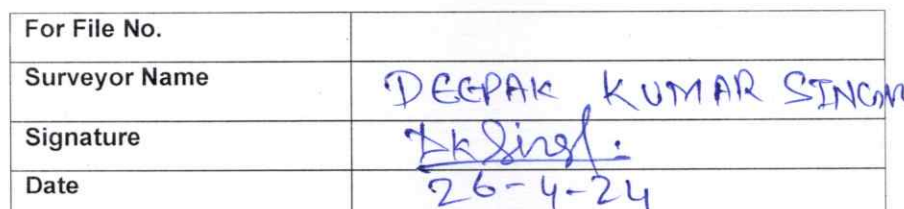 For File No.
Surveyor Name DEEPAK KUMAR SINGH
Signature DK Singh.
Date 26-4-24